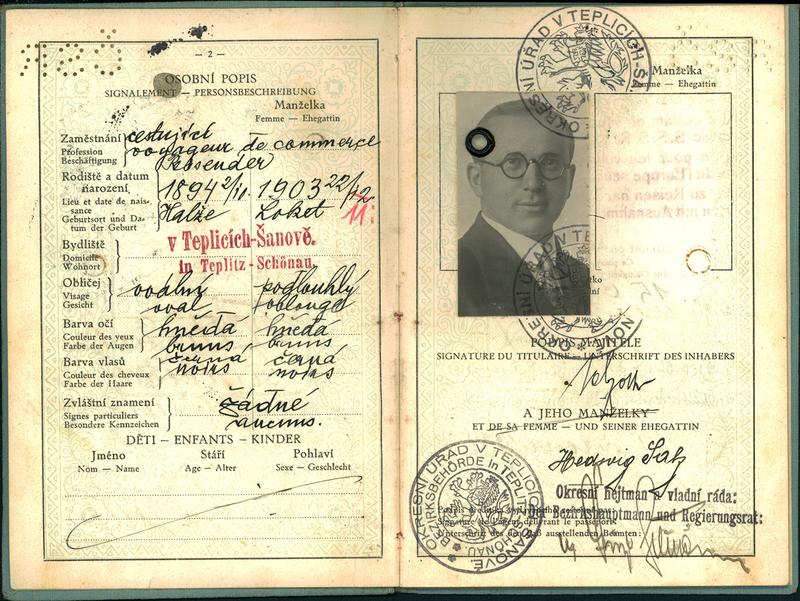 — 2 —
OSOBNÍ POPIS
SIGNALEMENT — PERSONSBESCHREIBUNG
Manželka
Femme — Ehegattin
Zaměstnání
Profession
Beschäftigung
cestující
voyageur de commerce
Reisender
Rodiště a datum
narození
Lieu et date de nais-
sance
Geburtsort und Da-
tum der Geburt
1894 2/II. 1903 22/12
11:
Halže Loket
Bydliště
Domicile
Wohnort
v Teplicích-Šanově.
in Teplitz-Schönau.
Obličej
Visage
Gesicht
oválný podlouhlý
oval oblongue
Barva očí
Couleur des yeux
Farbe der Augen
hnědá hnědá
bruns bruns
Barva vlasů
Couleur des cheveux
Farbe der Haare
černá černá
noirs noirs
Zvláštní znamení
Signes particuliers
Besondere Kennzeichen
žádné
aucuns.
DĚTI — ENFANTS — KINDER
Jméno Stáří Pohlaví
Nom — Name Age — Alter Sexe — Geschlecht
OKRESNÍ ÚŘAD V TEPLICÍCH ŠA
Manželka
Femme — Ehegattin
PODPIS MAJITELE
SIGNATURE DU TITULAIRE — UNTERSCHRIFT DES INHABERS
A JEHO MANŽELKY
ET DE SA FEMME — UND SEINER EHEGATTIN
Hedwig
OKRESNÍ ÚŘAD V TEPLICÍCH ŠANOVĚ
BEZIRKSBEHÖRDE in TEPLITZ SCHÖNAU
Okresní hejtman a vládní ráda:
Der Bezirkshauptmann und Regierungsrat:
Signature de l'agent délivrant le passeport
Unterschrift des den Paß ausstellenden Beamten: